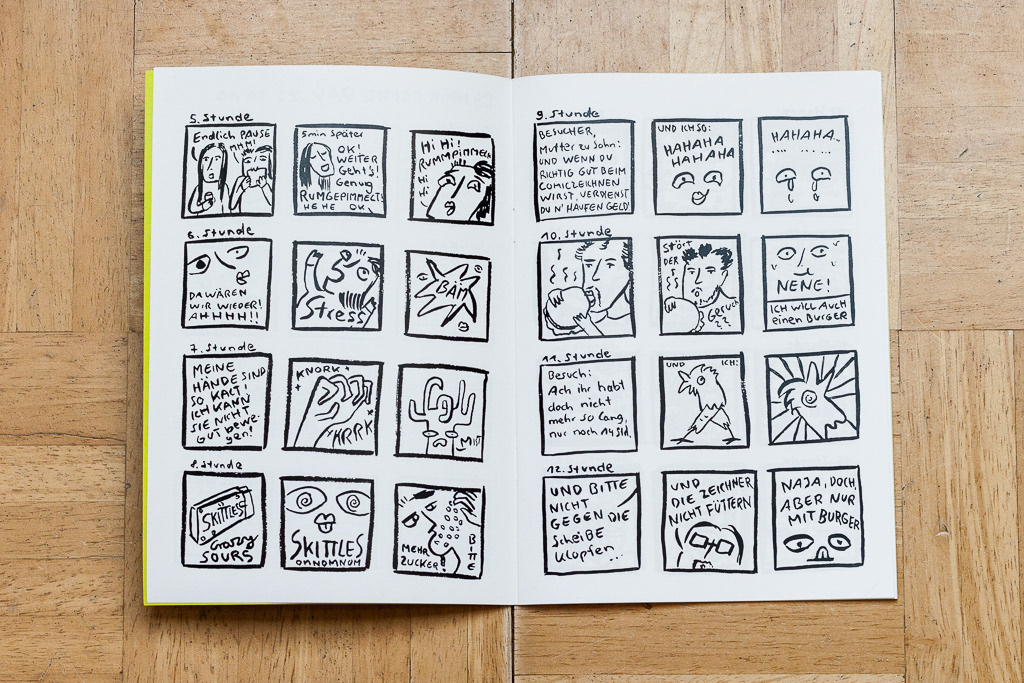 5. Stunde
Endlich PAUSE
MHM!
5min Später
OK!
WEITER
Geht's!
Genug
RUMGEPIMMELT!
HEHE OK
Hi Hi!
RUMMPIMMELN
Hi
Hi
6. Stunde
DA WÄREN
WIR WIEDER!
AHHHH!!
Stress
BÄM
7. Stunde
MEINE
HÄNDE SIND
SO KALT!
ICH KANN
SIE NICHT
GUT BEWE-
gen!
KNORK
KRRK
MIST
8. Stunde
SKITTLES
Crazy
SOURS
SKITTLES
OMNOMNOM
MEHR
ZUCKER!
BITTE
9. Stunde
BESUCHER,
Mutter zu Sohn:
UND WENN DU
RICHTIG GUT BEIM
COMICZEICHNEN
WIRST, VERDIENST
DU N' HAUFEN GELD!
UND ICH SO:
HAHAHA
HAHAHA
HAHAHA..
10. Stunde
Stört
DER
Geruch
??
NENE!
ICH WILL AUCH
einen BURGER
11. Stunde
Besuch:
Ach ihr habt
doch nicht
mehr so lang,
nur noch 14 Std.
UND ICH:
12. Stunde
UND BITTE
NICHT
GEGEN DIE
ScheiBE
Klopfen...
UND
DIE ZEICHNER
NICHT FÜTTERN
NAJA, DOCH,
ABER NUR
MIT BURGER